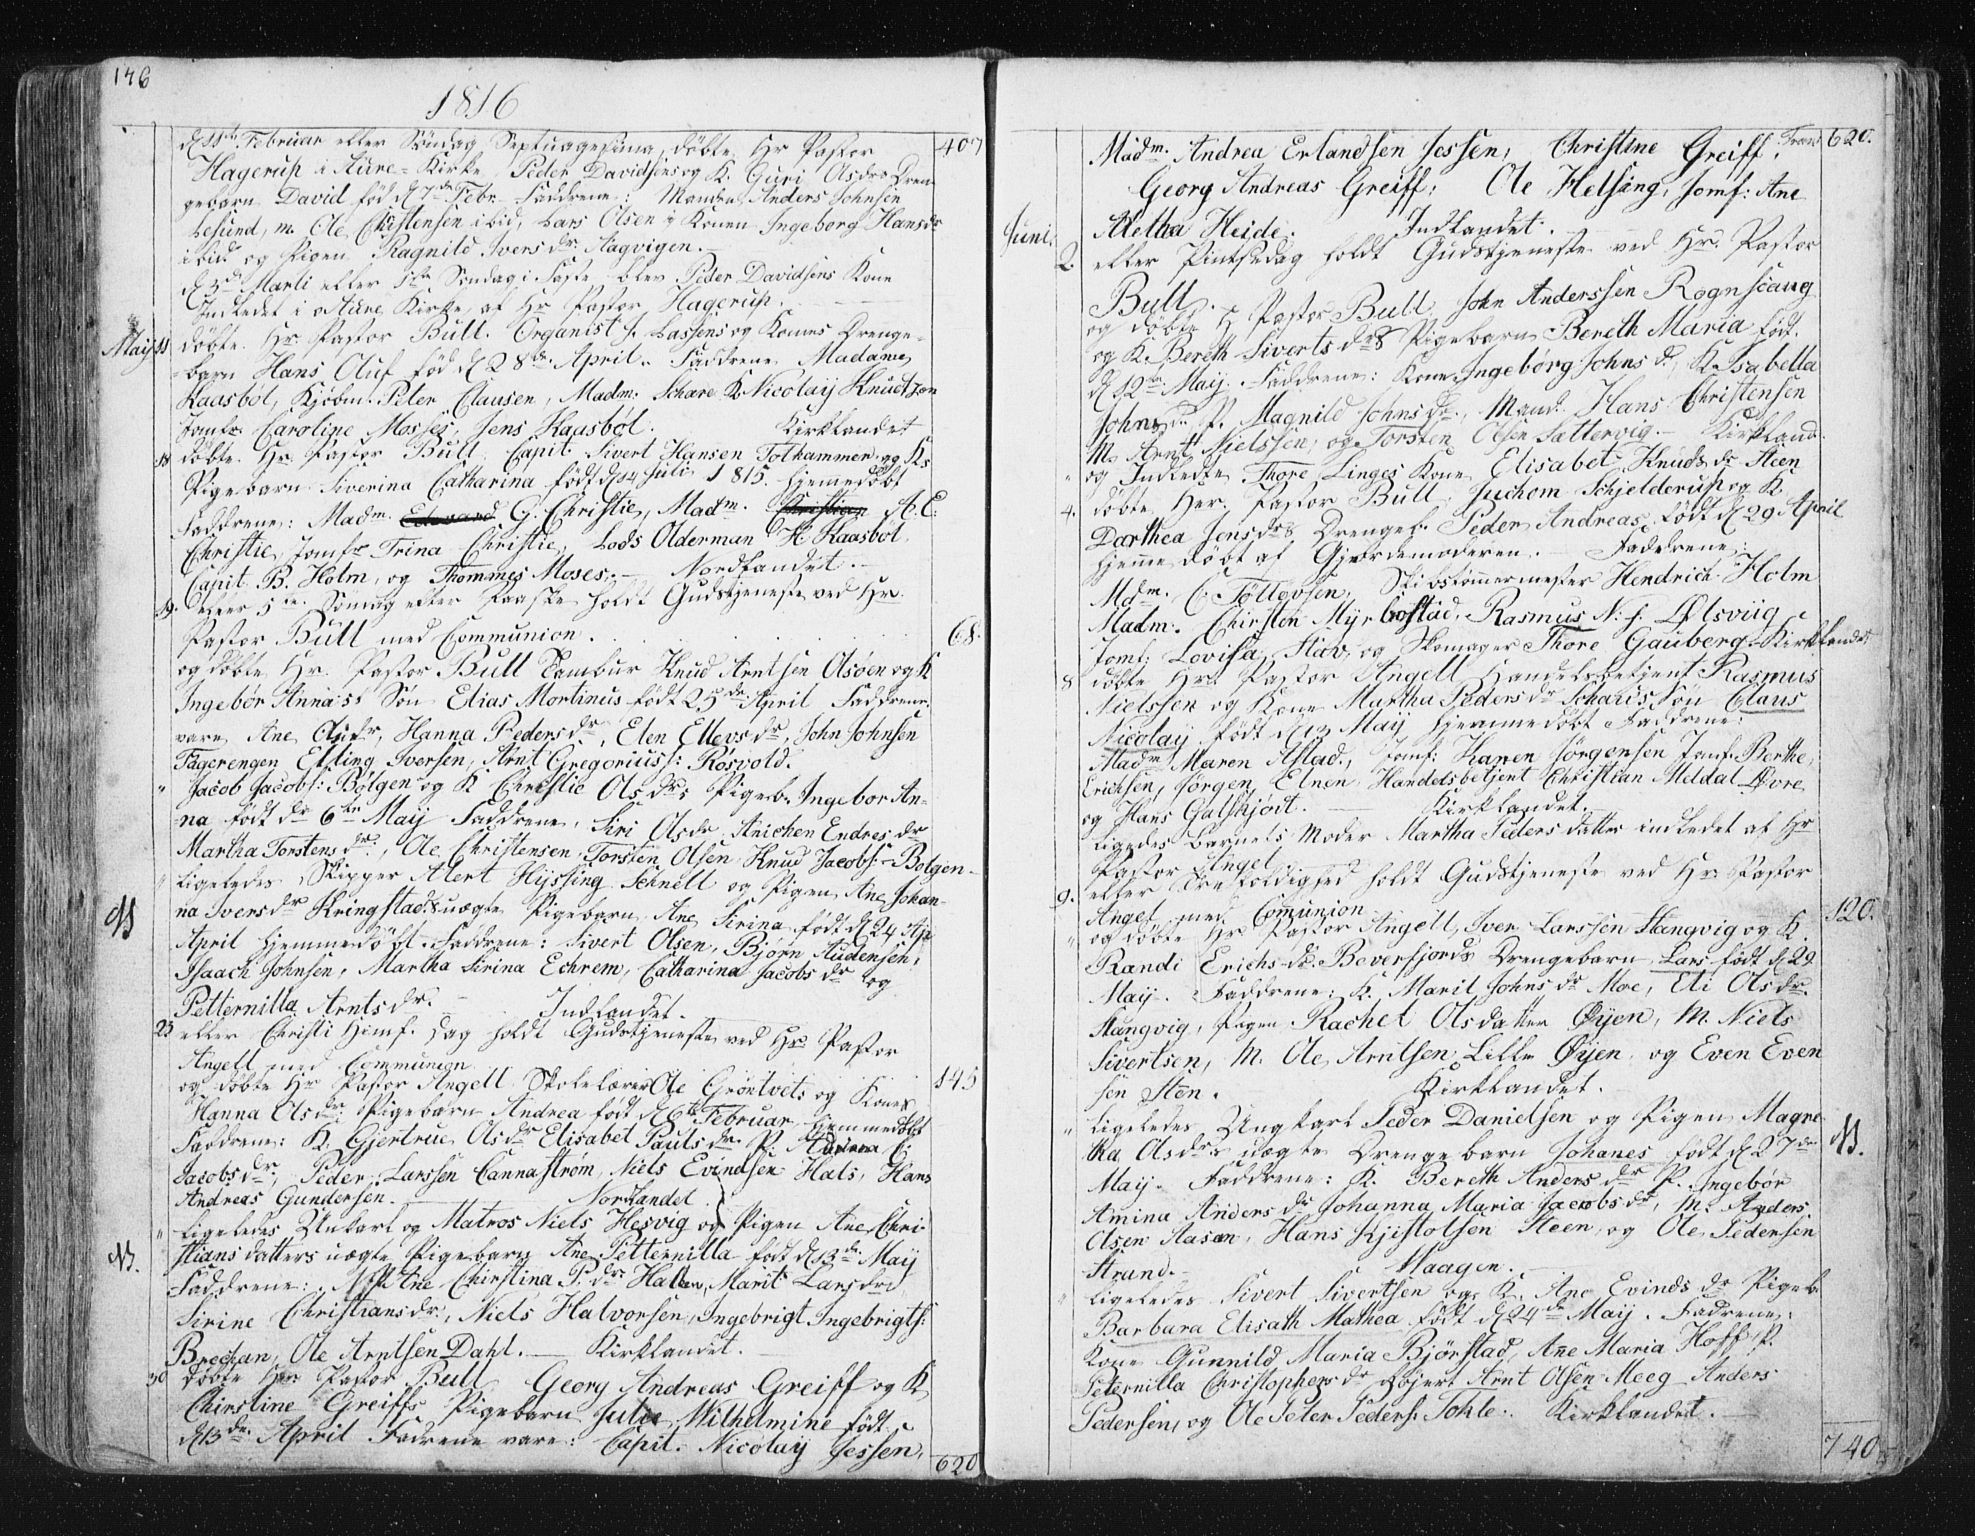 146
1816
d 11te Februar eller Söndag Septuagesima, döbte Hr Pastor 407
Hagerup i Aure-Kirke Peder Davidsens og K. Guri Olsdr Dren-
gebarn David föd d 7de Febr. Faddrene: Manden Anders Johnsen
Lesund, m. Ole Christensen ibid, Lars Olsen, Konen Ingeborg Hansdr
ibid og Pigen Ragnild Iversdr Aagvigen.
d 3d Marti eller 1ste Söndag i Faste blev Peder Davidsens Kone
Indledet i Aure Kirke, af Hr Pastor Hagerup.
May 11 döbte Hr. Pastor Bull. Organist Lassens og Kones Drenge-
barn Hans Oluf föd d 28de April. Faddrene Madame
Kaasböl, Kjöbm. Peter Clausen, Madm: Schare K Nicolay Knudtzon
Jomfr. Caroline Moses, Jens Kaasböl. Kirklandet
18 döbte Hr. Pastor Bull Capit. Sivert Hansen Tothammer og Ks
Pigebarn Siverina Catharina födt d 14 Juli 1815. Hjemedöbt
Faddrene: Madm. G. Christie, Madm. A. C:
Christie, Jomfr Trina Christie, Lods Olderman H. Kaasböl,
Capit. B. Holm, og Thommes Moses. Nordlandet.
19. eller 5te Söndag efter Paaske holdt Gudstjeneste ved Hr.
Pastor Bull med Communion. 68.
og döbte Hr. Pastor Bull Tambur Knud Arntsen Olsöen og K
Ingebör Anna's Sön Elias Mortinus födt 25de April Faddrene
vare Ane Olsdr, Hanna Pedersdr, Elen Ellevsdr, John Johnsen
Fagerengen Elling Iversen, Arnt Gregoriuss: Rösvold.
" Jacob Jacobs: Bölgen og K Christie Olsdrs Pigeb. Ingebor An-
na födt d 6te May Faddrene, Siri Olsdr Anichen Endresdr
Martha Torstensdr, Ole Christensen, Torsten Olsen Knud Jacobs: Bolgen
" Ligeledes Skipper Alert Hyssing Schnell og Pigen Ane Johan-
na Iversdr Kringstads uægte Pigebarn Ane Sirina födt d 24 Ap
April Hjemmedöbt. Faddrene: Sivert Olsen, Björn Audensen,
Isaach Johnsen, Martha Sirina Echrem, Catharina Jacobsdr og
Petternilla Arntsdr. Indlandet.
23 eller Christi Himf. Dag holdt Gudstjeneste ved Hr: Pastor
Angell med Communion. 145
og döbte Hr Pastor Angell. Skolelærer Ole Gröntvets og Kones
Hanna Olsdr Pigebarn Andrea födt d 6te Februar Hjemmedöbt
Faddrene: K. Gjertrue Olsdr Elisabet Paulsdr P. C:
Jacobsdr, Peder Larssen Cannaström, Niels Evindsen Hals, Hans
Andreas Gundersen. Nordlandet
" Ligeledes Unkarl og Matros Niels Hesvig og Pigen Ane Chri-
stians datters uægte Pigebarn Ane Petternilla födt d 13de May
Faddrene: Ane Christina P.dr Halten, Marit Larsdr
Sirine Christiansdr, Niels Halvorsen, Ingebrigt Ingebrigts:
Brechan, Ole Arntsen Dahl. Kirklandet.
30 döbte Hr Pastor Bull Georg Andreas Greiff og K
Christine Greiffs Pigebarn Julie Wilhelmine födt
d 13de April Fadrene vare: Capit. Nicolay Jessen, 620
Madm. Andrea Erlandsen Jessen, Christine Greiff, Trans 620.
Georg Andreas Greiff, Ole Helsing, Jomf: Ane
Aletha Heide. Indlandet.
Juni 2. eller Pintsedag holdt Gudstjeneste ved Hr. Pastor
Bull.
og döbte H Pastor Bull John Anderssen Rognscaug
og K. Bereth Sivertsdrs Pigebarn Bereth Maria födt
d 12te May. Faddrene: Kone Ingebörg Johnsdr, K. Isabella
Johnsdr P. Magnild Johnsdr, Mand. Hans Christensen
M. Arnt Nielssen, og Torsten Olsen Sættervig. Kirkland.
" og Indledte Thore Linges Kone Elisabet Knudsdr Steen
4. döbte Her. Pastor Bull Juchom Schjelderup og K
Darthea Jensdrs Drengeb. Peder Andreas, födt d 29 April
Hjemmedöbt af Gjordemoderen. Faddrene:
Mdm. C. Töllevsen, Skibstömmermester Hendrich Holm
Madm. Chirsten Myrbostad, Rasmus N: f. Ølsviig
Jomf. Lovisa Hav, og Skomager Thore Gauberg. Kirklandet
8 döbte Hr. Pastor Angell Handelsbetjent Rasmus
Nielssen og Kone Martha Pedersdr Scharis Sön Claus
Nicolay födt d 13 May Hjemmedöbt Faddrene:
Madm Maren Astad, Jomf: Karen Jörgensen Jomf. Berthe
Erichsen, Jörgen Elnen Handelsbetjent Christian Meldal Øvre
og Hans Galskjödt. Kirklandet.
Ligedes Barnets Moder Martha Peders datter indledet af Hr
Pastor Angel.
9. eller Trefoldighed holdt Gudstjeneste ved Hr: Pastor
Angel med Comunion 120.
" og döbte Hr Pastor Angell, Iver Larssen Stangvig og K.
Randi Erichsdr. Beversfjords Drengebarn Lars födt d. 29
May. Faddrene: K. Marit Johnsdr Moe, Eli Olsdr.
Stangvig, Pigen Rachel Olsdatter Øyen, M. Niels
Sivertsen, M. Ole Arntsen Lille Øyen, og Even Even
sen Sten. Kirklandet.
" Ligeledes Ungkarl Peder Danielsen og Pigen Magre-
tha Olsdrs uægte Drengebarn Johanes födt d 27de
May. Faddrene: K. Bereth Andersdr P. Ingebör
Amina Andersdr Johanna Maria Jacobsdr, M. Anders
Olsen Aasan, Hans Kjistolsen Steen, og Ole Pedersen
Strand. Maagen.
" Ligeledes Sivert Sivertsen og K. Ane Evindsdr Pigeb
Barbara Elisath Mathea födt d 24de May. Fadrene:
Kone Gunnild Maria Björstad, Ane Maria Hoff, P.
Peternilla Christophersdr Arnt Olsen Meeg Anders
Pedersen, og Ole Peter Peders: Tohle. Kirklandet.
740